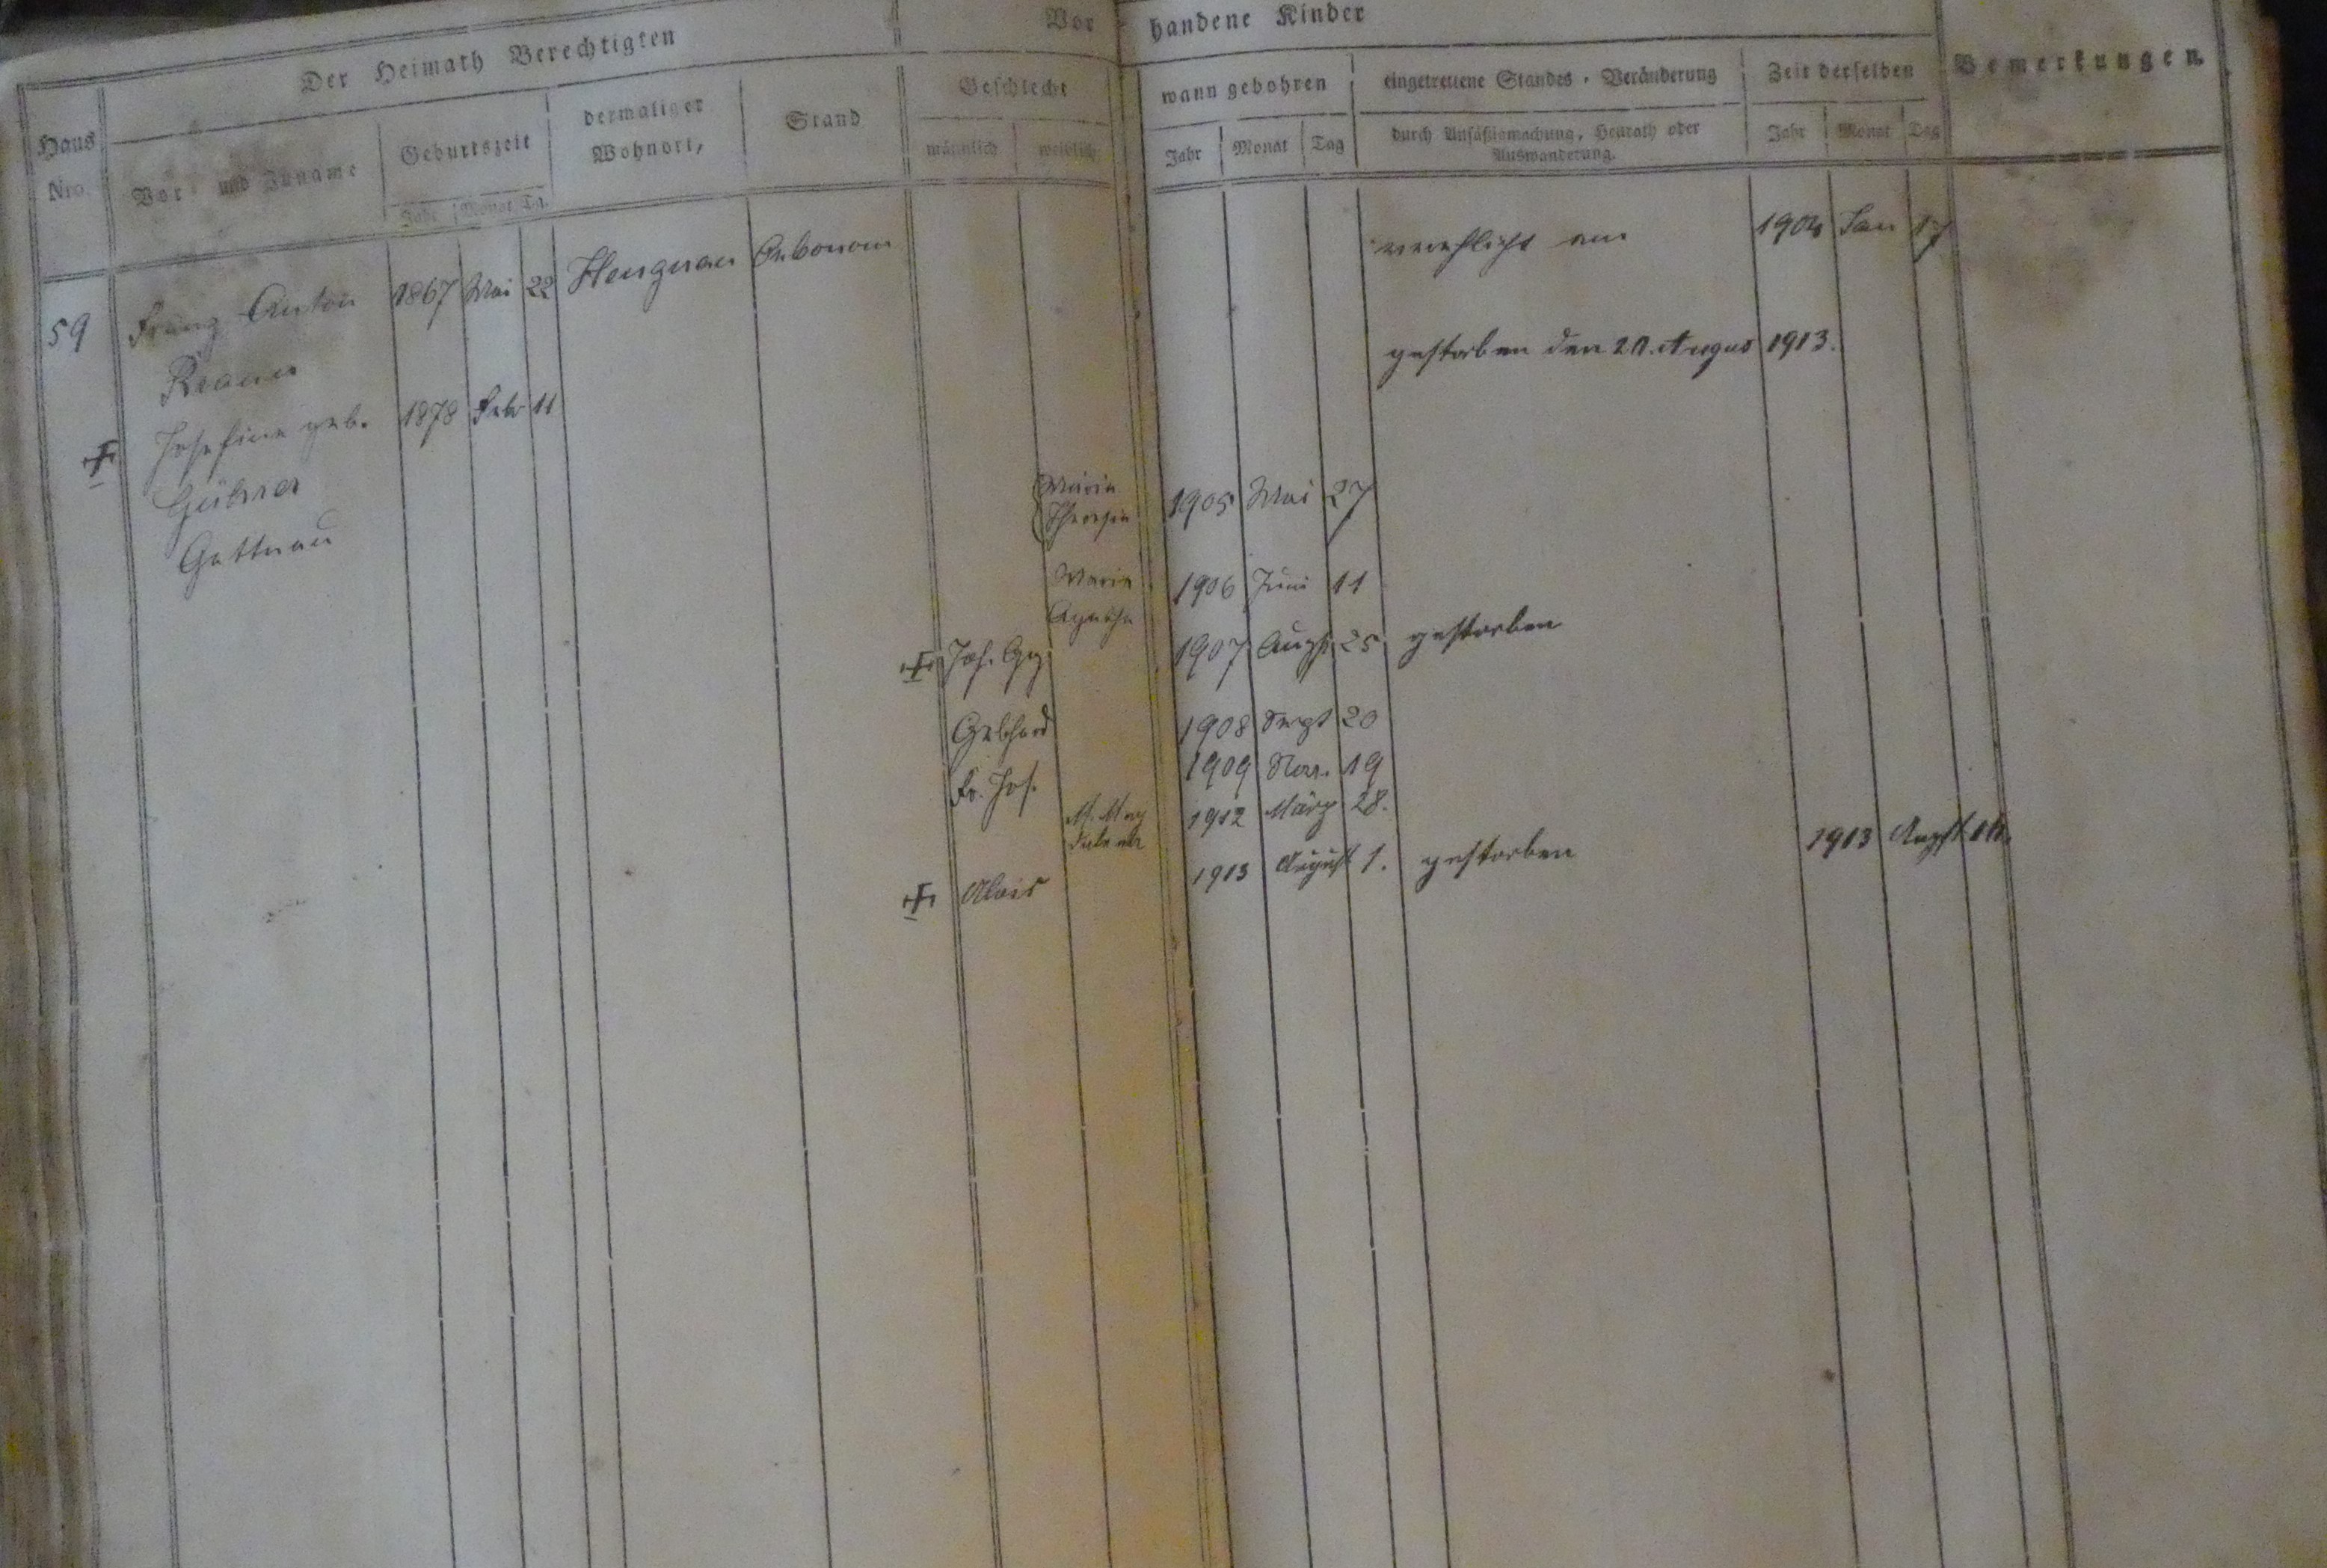 Der Heimath Berechtigten
Vorhandene Kinder
Haus Nro.
Vor- und Zuname
Geburtszeit
Jahr Monat Tg.
dermaliger Wohnort,
Stand
Geschlecht
männlich weiblich
wann gebohren
Jahr Monat Tag
eingetrettene Standes-Veränderung
durch Ansäßigmachung, Heurath oder
Auswanderung.
Zeit derselben
Jahr Monat Tag
Bemerkungen.
59 Franz Anton 1867 Mai 22 Hengnau Oekonom verehlicht am 1904 Jan 17
gestorben den 21. Augus 1913.
Josefine geb. 1878 Febr 11
Gührer
Gattnau
Maria
Theresia 1905 Mai 27
Maria 1906 Juni 11
Agatha
Joh. Gg. 1907 Augst 25 gestorben
Gebhard 1908 Sept 20
Fr. Jos. 1909 Nov. 19
1912 März 28.
Alois 1913 August 1. gestorben 1913 Augst